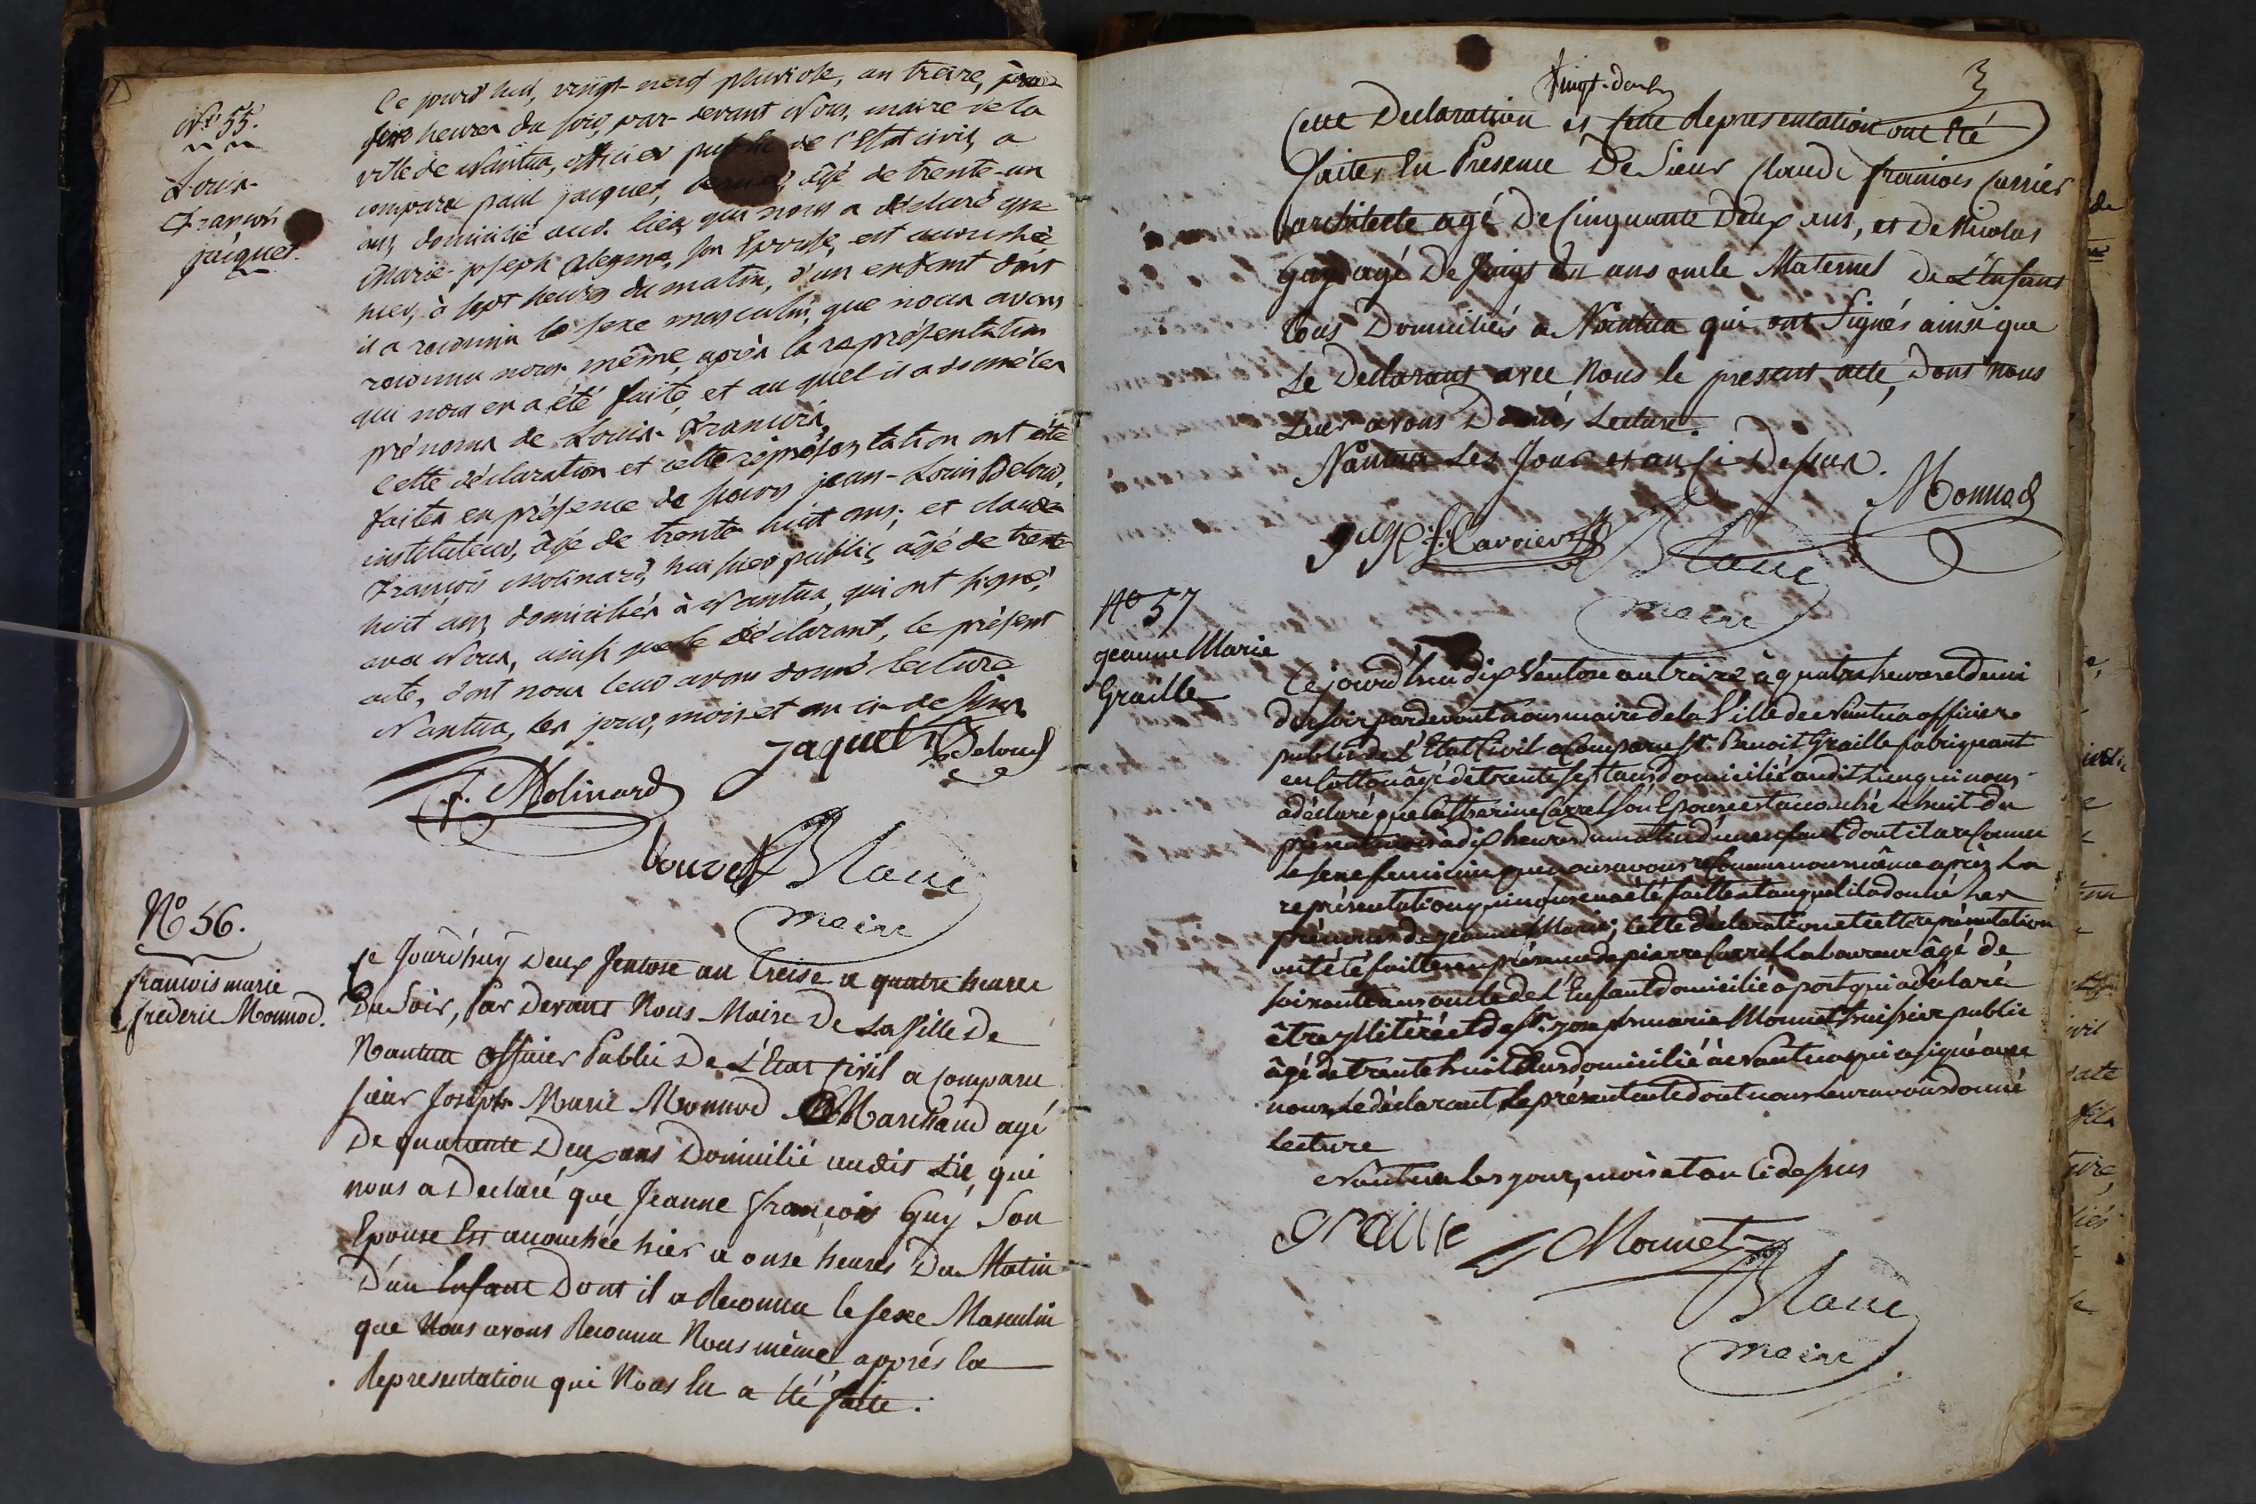 N.° 55.
Louis-
François
jacquet.
Ce jourd'hui, vingt-neuf pluviose, an treize, pour
heures du soir, par-devant Nous, maire de la
ville de Nantua, officier public de l'Etat civil, a
comparu paul jacquet, âgé de trente-un
ans, domicilié aud. lieu, qui nous a déclaré que
Marie-joseph son Epouse, est accouchée
hier, à sept heures du matin, d'un enfant dont
il a reconnu le sexe masculin, que nous avons
reconnu nous même, après la représentation
qui nous en a été faite, et au quel il a donné les
prénoms de Louis-François,
Cette déclaration et cette représentation ont été
faites en présence de sieurs jean-Louis Deloud,
instituteur, âgé de trente huit ans; et claude
François Molinard, huissier public, âgé de trente
huit ans, domiciliés à Nantua, qui ont signé,
avec Nous, ainsi que le déclarant, le présent
acte, dont nous leur avons donné lecture
Nantua, les jour, mois et an ci-dessus
jaquet Deloud
f. Molinard
bouvet Blanc
maire
N° 56.
francois marie
frederic Monnod.
Ce Jourd'huy Deux Ventose an treise a quatre heures
Du Soir, Par Devant Nous Maire De La Ville De
Nantua officier Public De L'Etat Civil a Comparu
sieur Joseph Marie Monnod Marchand agé
De quarante Deux ans Domicilié audit Lie, qui
nous a Declaré que Jeanne françois Guy Son
Epouse Est accouchée hier a onse heures Du Matin
D'un Enfant Dont il a Reconnu le sexe Masculin
que Nous avons Reconnu Nous même, apprés la
Representation qui Nous En a Eté faite.
Vingt-deux
3
Cette Declaration et Cette Representation ont Eté
faites En Presence De Sieur Claude francois Carrier
architecte agé De Cinquante Deux ans, et De Nicolas
Guy agé De Vingt ans oncle Maternel De L'Enfant
tous Domiciliés a Nantua qui ont Signés ainsi que
Le Declarant avec Nous le present acte, Dont nous
Leur avons Donnés Lecture.
Nantua Les Jour et an Ci Dessus.
Monnod
guy f: Carrier Blanc
maire
N° 57
jeanne Marie
Graille
Cejourd'hui dix Ventose an treize à quatre heures et demi
du soir pardevant nous maire de la Ville de Nantua officier
public de l'Etat Civil a Comparu Sr. Benoit Graille fabriquant
en Cotton âgé de trente sept ans domicilié audit Lieu qui nous
a déclaré que Catherine Carrel son Epouse est accouché le huit du
présent mois à dix heures du matin d'un enfant dont il a reconnu
le sexe feminin que nous avons reconnu nous même après La
représentation qui nous en a été faitte et auquel il a donné les
prénoms de jeanne Marie; Cette déclaration et cette représentation
ont été faittes en présence de pierre Carrel Laboureur âgé de
soixante ans oncle de l'Enfant domicilié a port qui a déclaré
être illitéré et de Sr. joseph marie Monnet huissier public
âgé de trente huit ans domicilié à Nantua qui a signé avec
nous et le déclarant le présent acte dont nous leur avons donné
lecture
Nantua les jour, mois et an Ci dessus
Graille Monnet
Blanc
maire